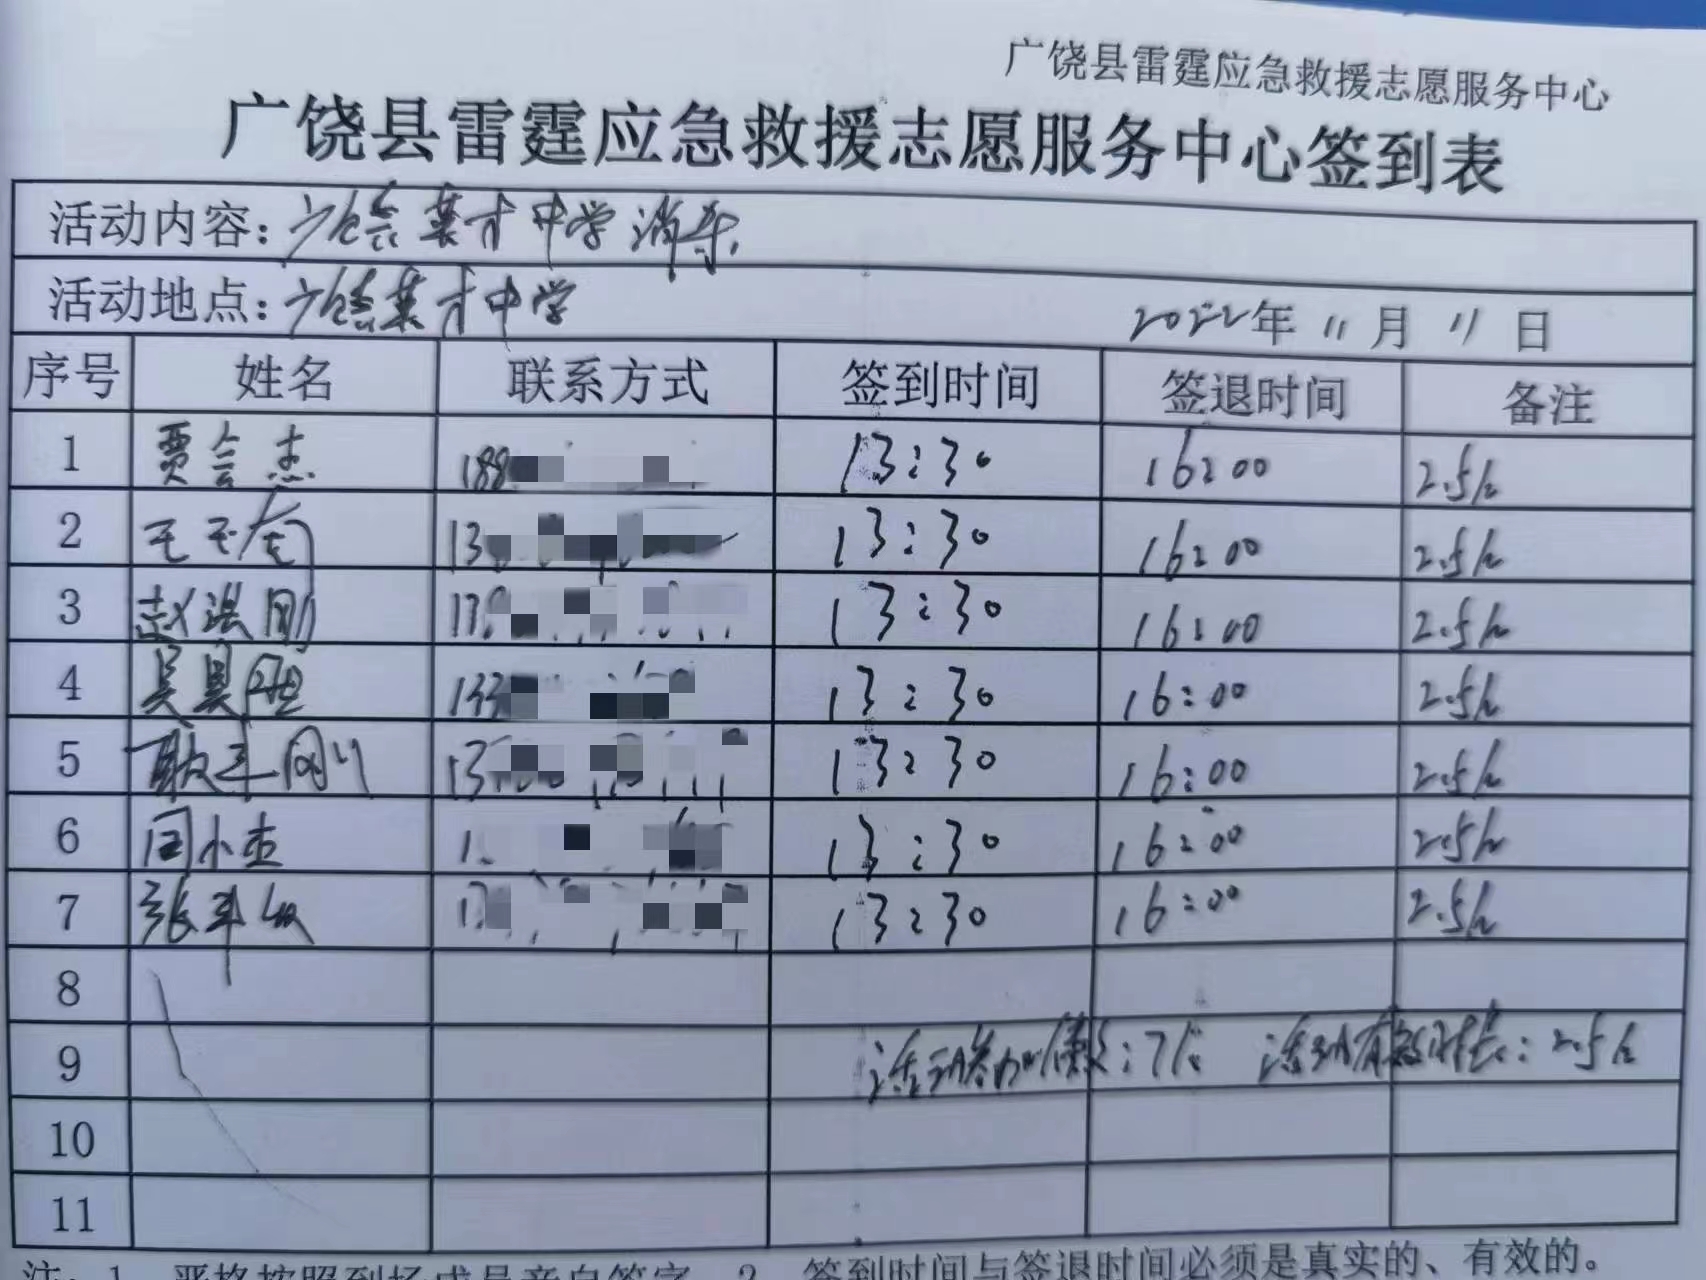 广饶县雷霆应急救援志愿服务中心
广饶县雷霆应急救援志愿服务中心签到表
活动内容: 广饶英才中学消杀
活动地点: 广饶英才中学
2022年 11月 11日
序号 姓名 联系方式 签到时间 签退时间 备注
1 贾会杰 188 13:30 16:00 2.5h
2 13 13:30 16:00 2.5h
3 赵洪刚 13 13:30 16:00 2.5h
4 吴 133 13:30 16:00 2.5h
5 耿 刚 13 13:30 16:00 2.5h
6 闫小杰 1 13:30 16:00 2.5h
7 张 1 13:30 16:00 2.5h
8
9 活动参加人数:7人 活动有效时长:2.5h
10
11
注:1、严格按照到场成员亲自签字 2、签到时间与签退时间必须是真实的、有效的。